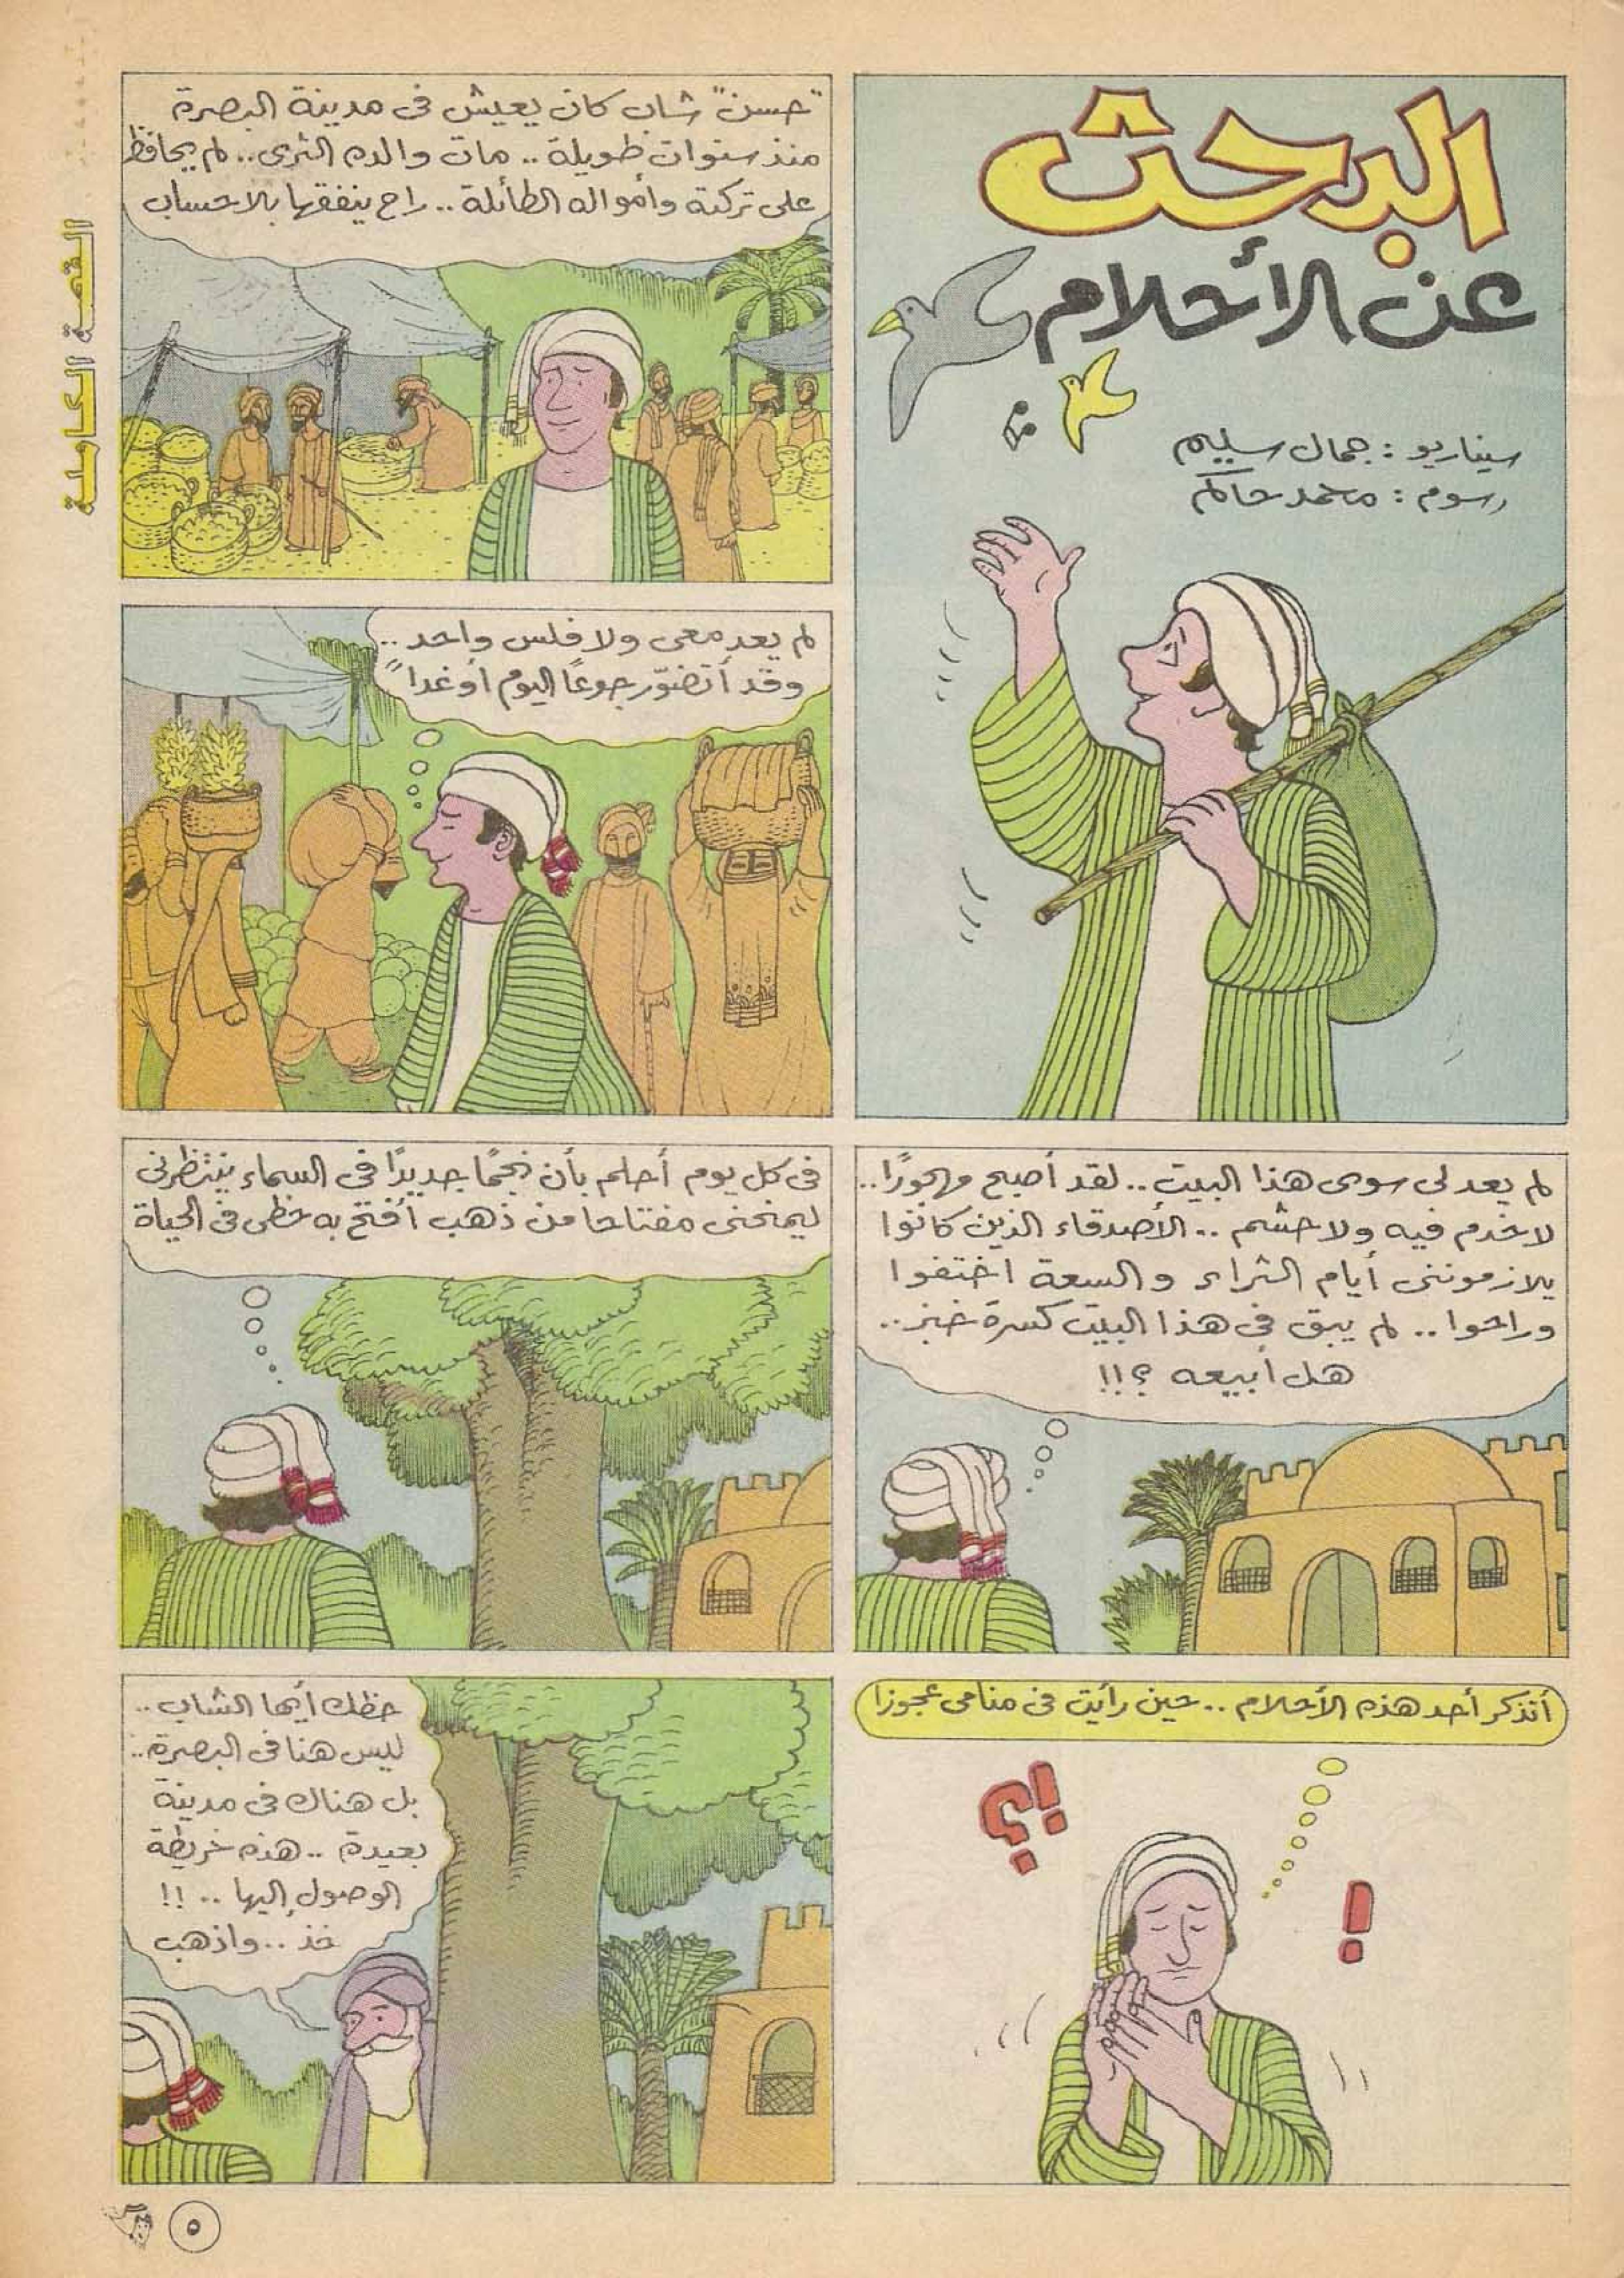 القصة الكاملة
البحث
عن الأحلام
سيناريو : جمال سليم
رسوم : محمد حاكم
"حسن" شاب كان يعيش فى مدينة البصرة
منذ سنوات طويلة .. مات والده الثرى .. لم يحافظ
على تركته وأمواله الطائلة .. راح ينفقها بلا حساب
لم يعد معى ولا فلس واحد ..
وقد أتضوّر جوعاً اليوم أو غداً
لم يعد لى سوى هذا البيت .. لقد أصبح مهجورًا ..
لا خدم فيه ولا حشم .. الأصدقاء الذين كانوا
يلازموننى أيام الثراء والسعة اختفوا
وراحوا .. لم يبق فى هذا البيت كسرة خبز ..
هل أبيعه ؟!!
فى كل يوم أحلم بأن نجمًا جديدًا فى السماء ينتظرنى
ليمنحنى مفتاحا من ذهب أفتح به حظى فى الحياة
أتذكر أحد هذه الأحلام .. حين رأيت فى منامى عجوزا
؟!
!
حظك أيها الشاب ..
ليس هنا فى البصرة ..
بل هناك فى مدينة
بعيدة .. هذه خريطة
الوصول إليها .. !!
خذ .. واذهب
٥